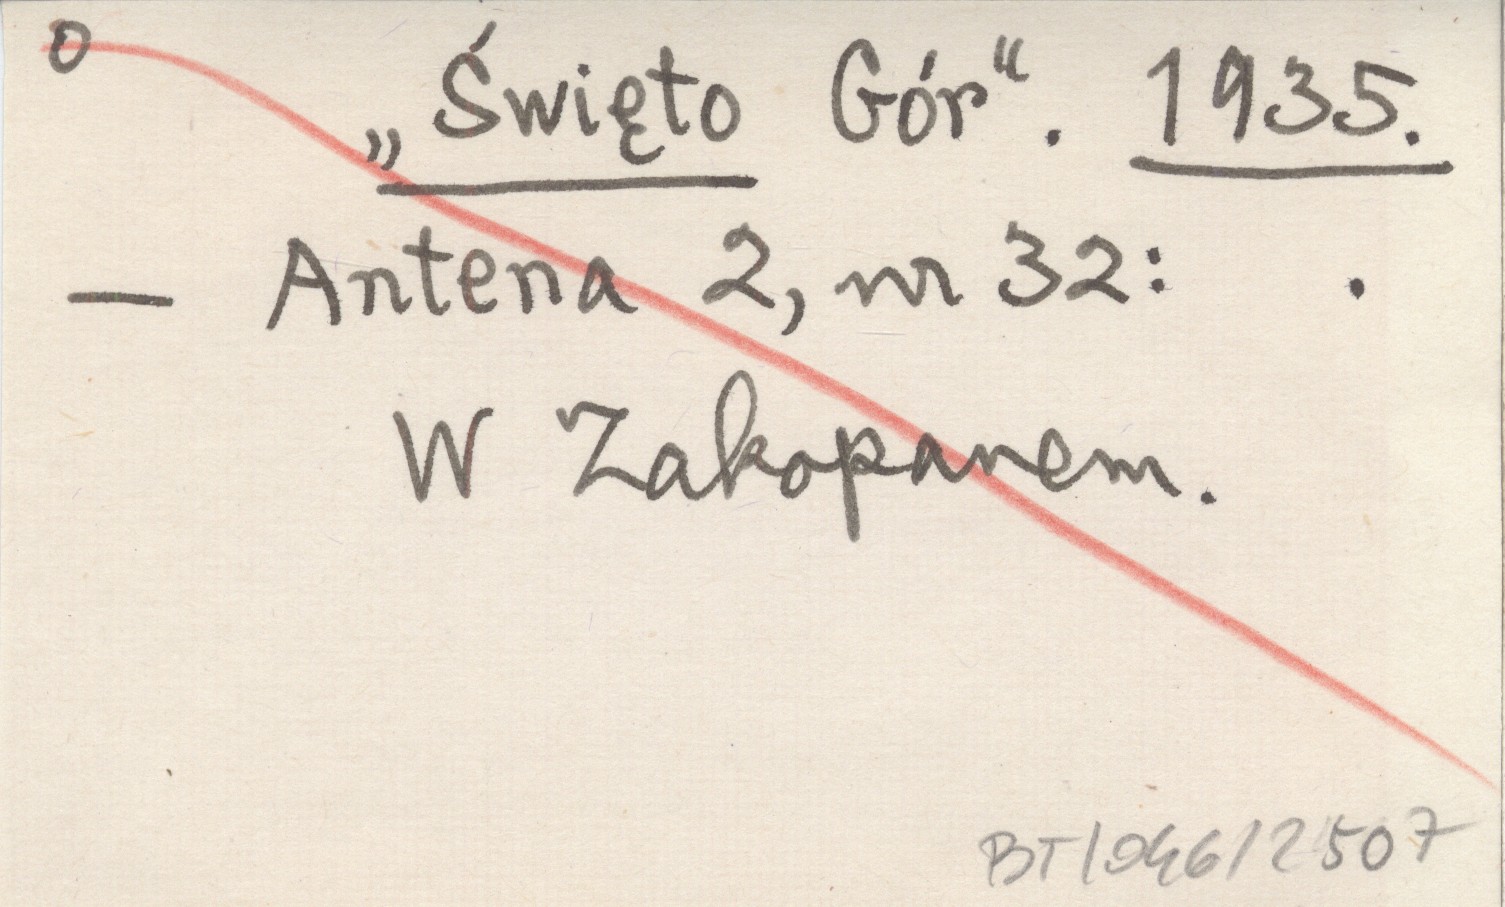 o
„Święto Gór“. 1935.
— Antena 2, nr 32: .
W Zakopanem.
BT/046/2507